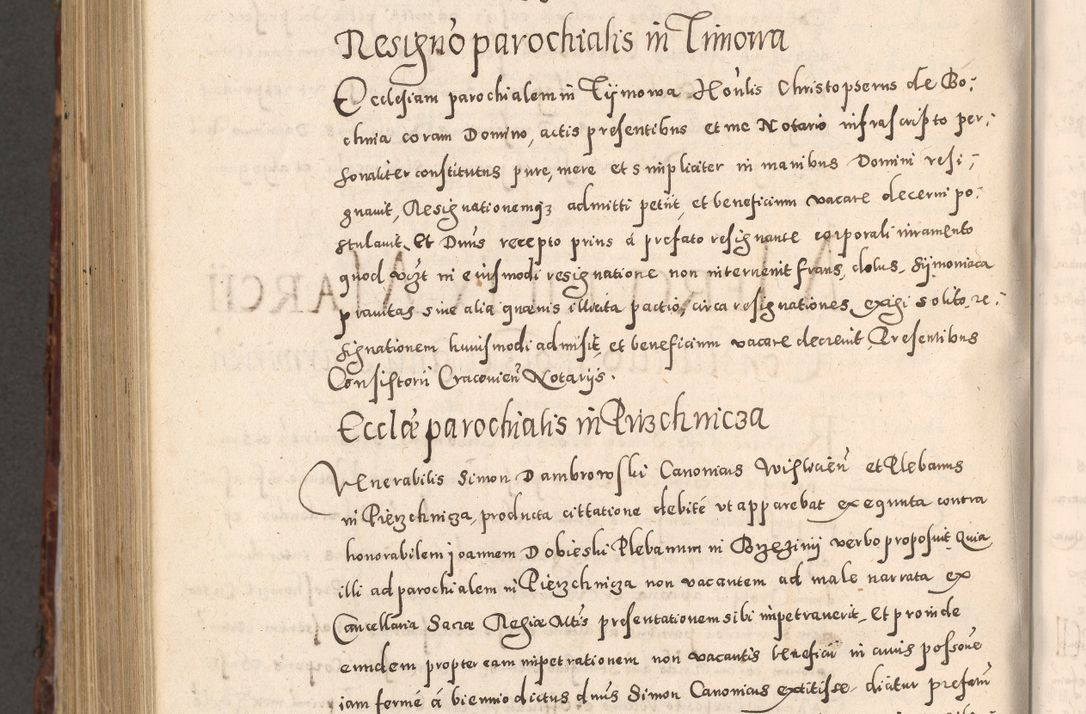 Resignō parochialis in Timowa
Ecclesiam parochialem in Tymowa Honlis Christopherus de Bo-
chnia coram Domino, actis presentibus et me Notario infrascripto per-
sonaliter constitutus pure, mere et simpliciter in manibus Domini resi-
gnauit, Resignationemq3 admitti petijt, et beneficium vacare decerni po-
stulauit. Et Dnus recepto prius á prefato resignante corporali iuramento
quod in eiusmodi resignatione non interuenit fraus, dolus, Sÿmoniaca
prauitas siue alia quæuis illicita pactio, circa resignationes exigi solito, re-
signationem huiusmodi admisit, et beneficium vacare decreuit, Presentibus
Consistorii Cracovien̄ Notarijs.
Ecclæ parochialis in Pirzchnicza
Venerabilis Simon Dambrowski Canonicus Wislicien̄ et Plebanus
in Pierzchnicza, producta cittatione debité vt apparebat exequuta contra
honorabilem Joannem Dobieski Plebanum in Brzezinÿ verbo proposuit, Quia
illi ad parochialem in Pierzchnicza non vacantem ad male narrata ex
Cancellaria Sacræ Regiæ Mtis presentationem sibi impetrauerit, Et proinde
eundem propter eam impetrationem non vacantis beneficii in cuius possōne
iam fermé á biennio dictus dnus Simon Canonicus extitisse dicitur prefatū